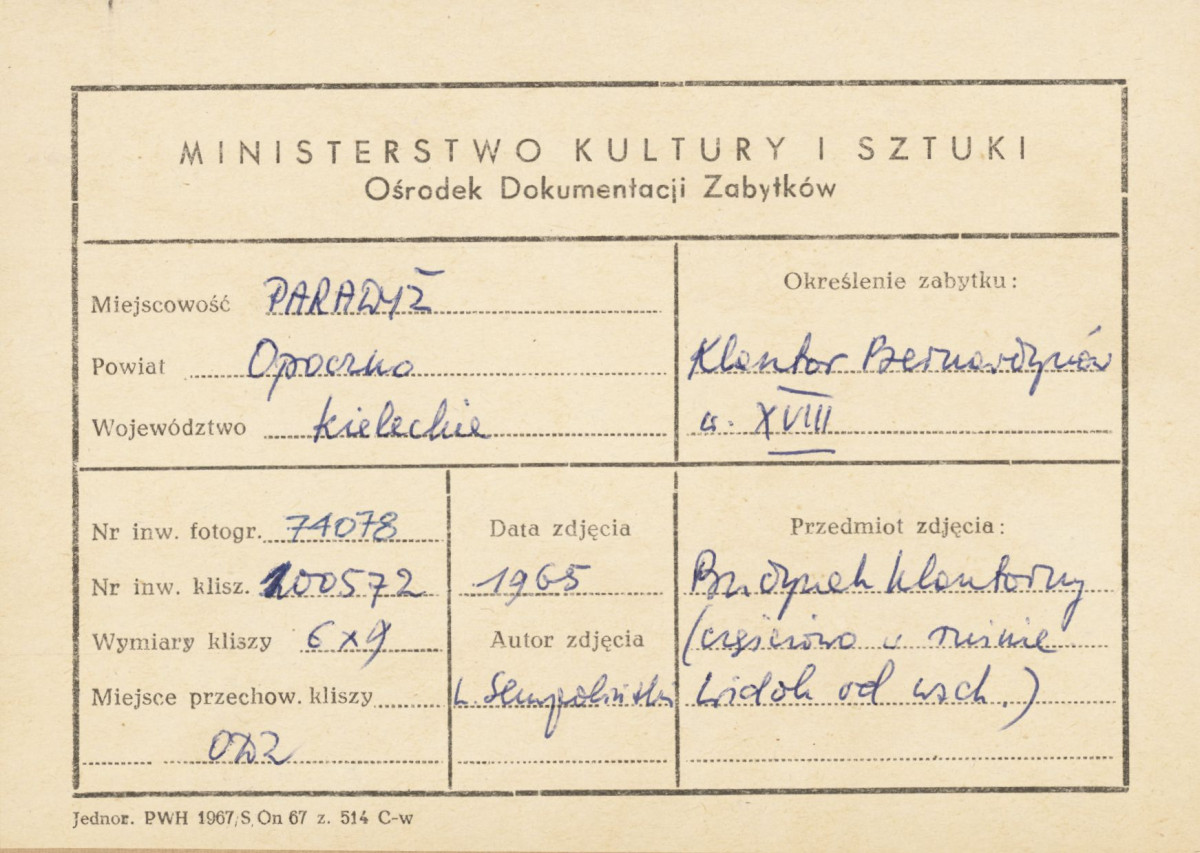 MINISTERSTWO KULTURY I SZTUKI
Ośrodek Dokumentacji Zabytków
Miejscowość PARADYŻ
Powiat Opoczno
Województwo kieleckie
Określenie zabytku:
Klasztor Bernardynów
w. XVIII
Nr inw. fotogr. 74078
Nr inw. klisz. 100572
Wymiary kliszy 6x9
Miejsce przechow. kliszy
ODZ
Data zdjęcia
1965
Autor zdjęcia
L. Sempoliński
Przedmiot zdjęcia:
Budynek klasztorny
(częściowo w ruinie
widok od wsch.)
Jednor. PWH 1967, S, On 67 z. 514 C-w